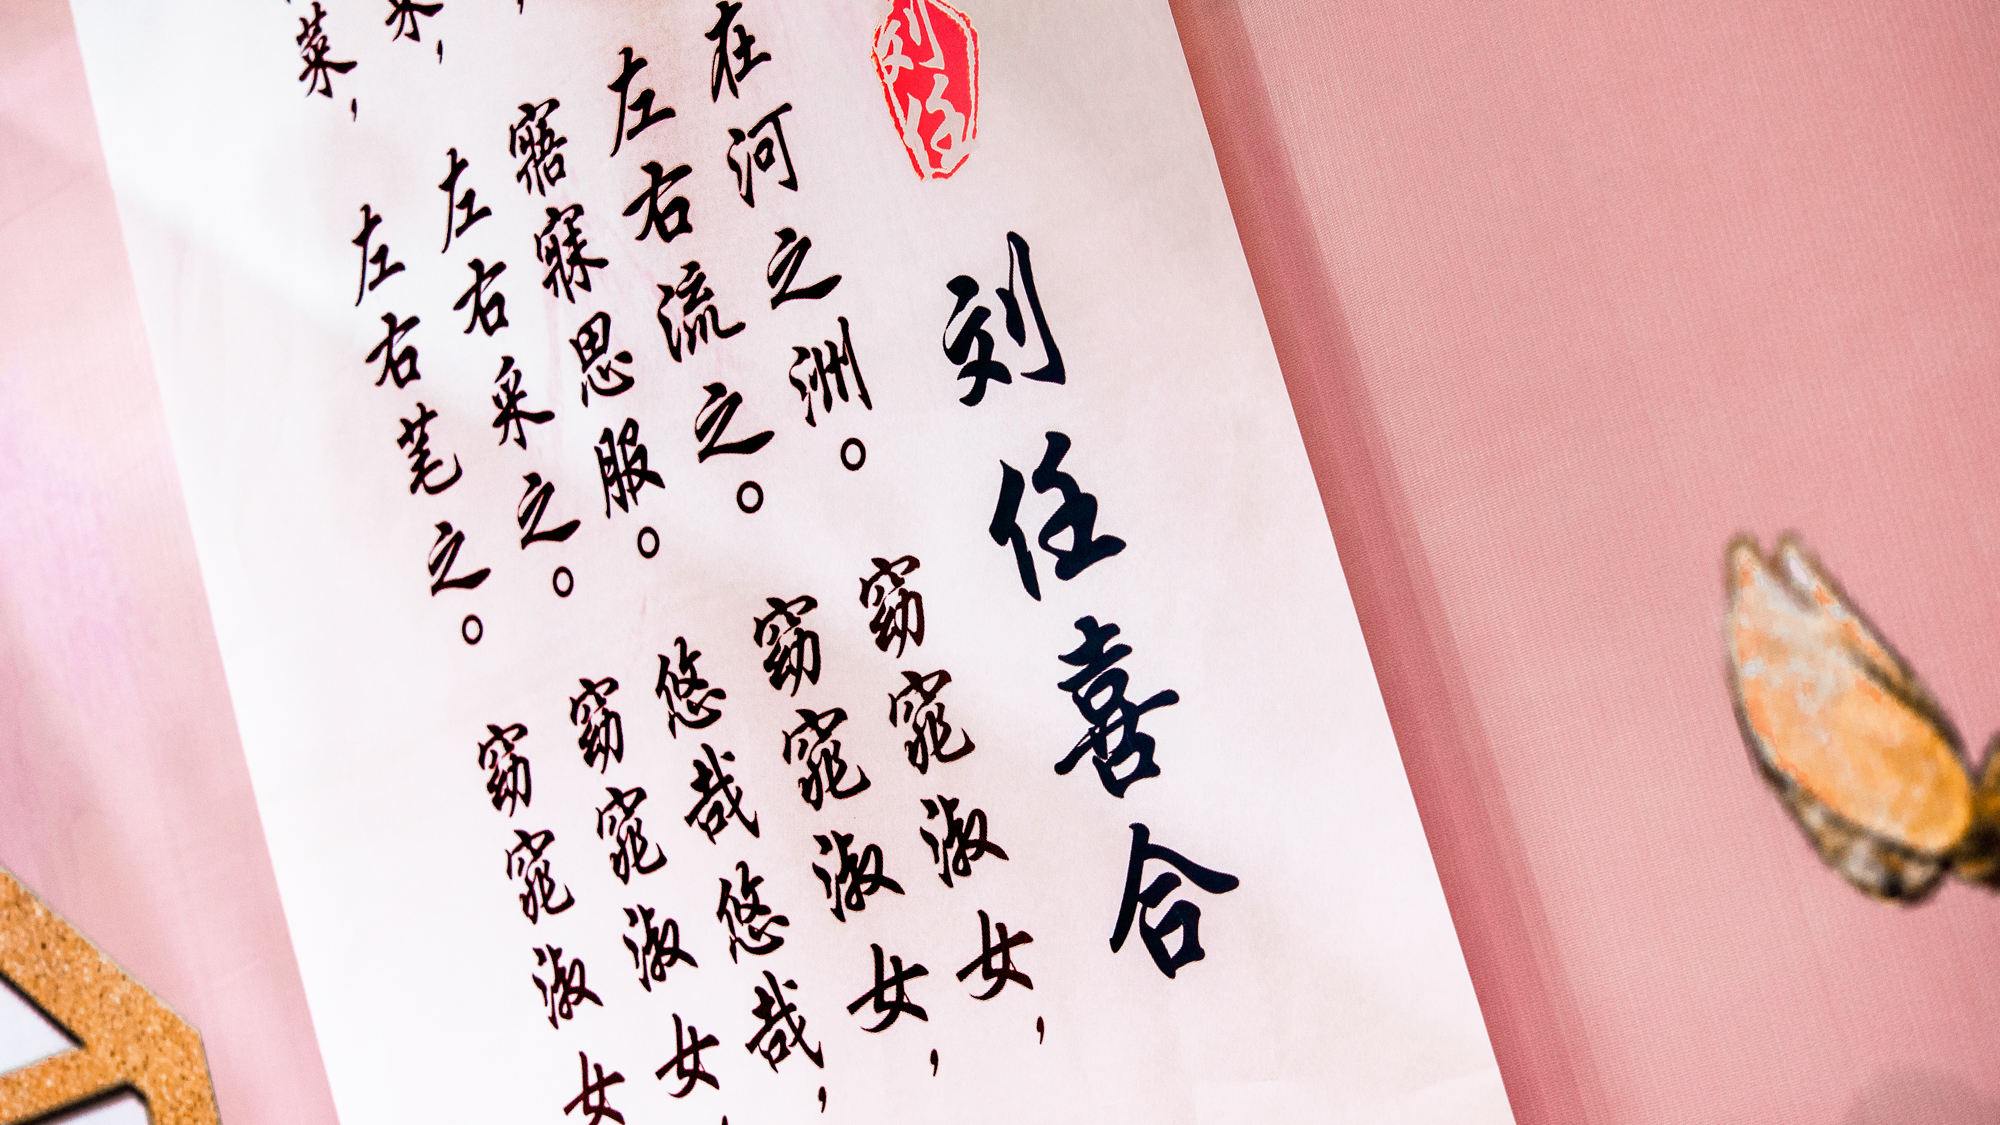 刘任
刘任喜合
在河之洲。窈窕淑女，
左右流之。窈窕淑女，
寤寐思服。悠哉悠哉，
左右采之。窈窕淑女，
菜，左右芼之。窈窕淑女